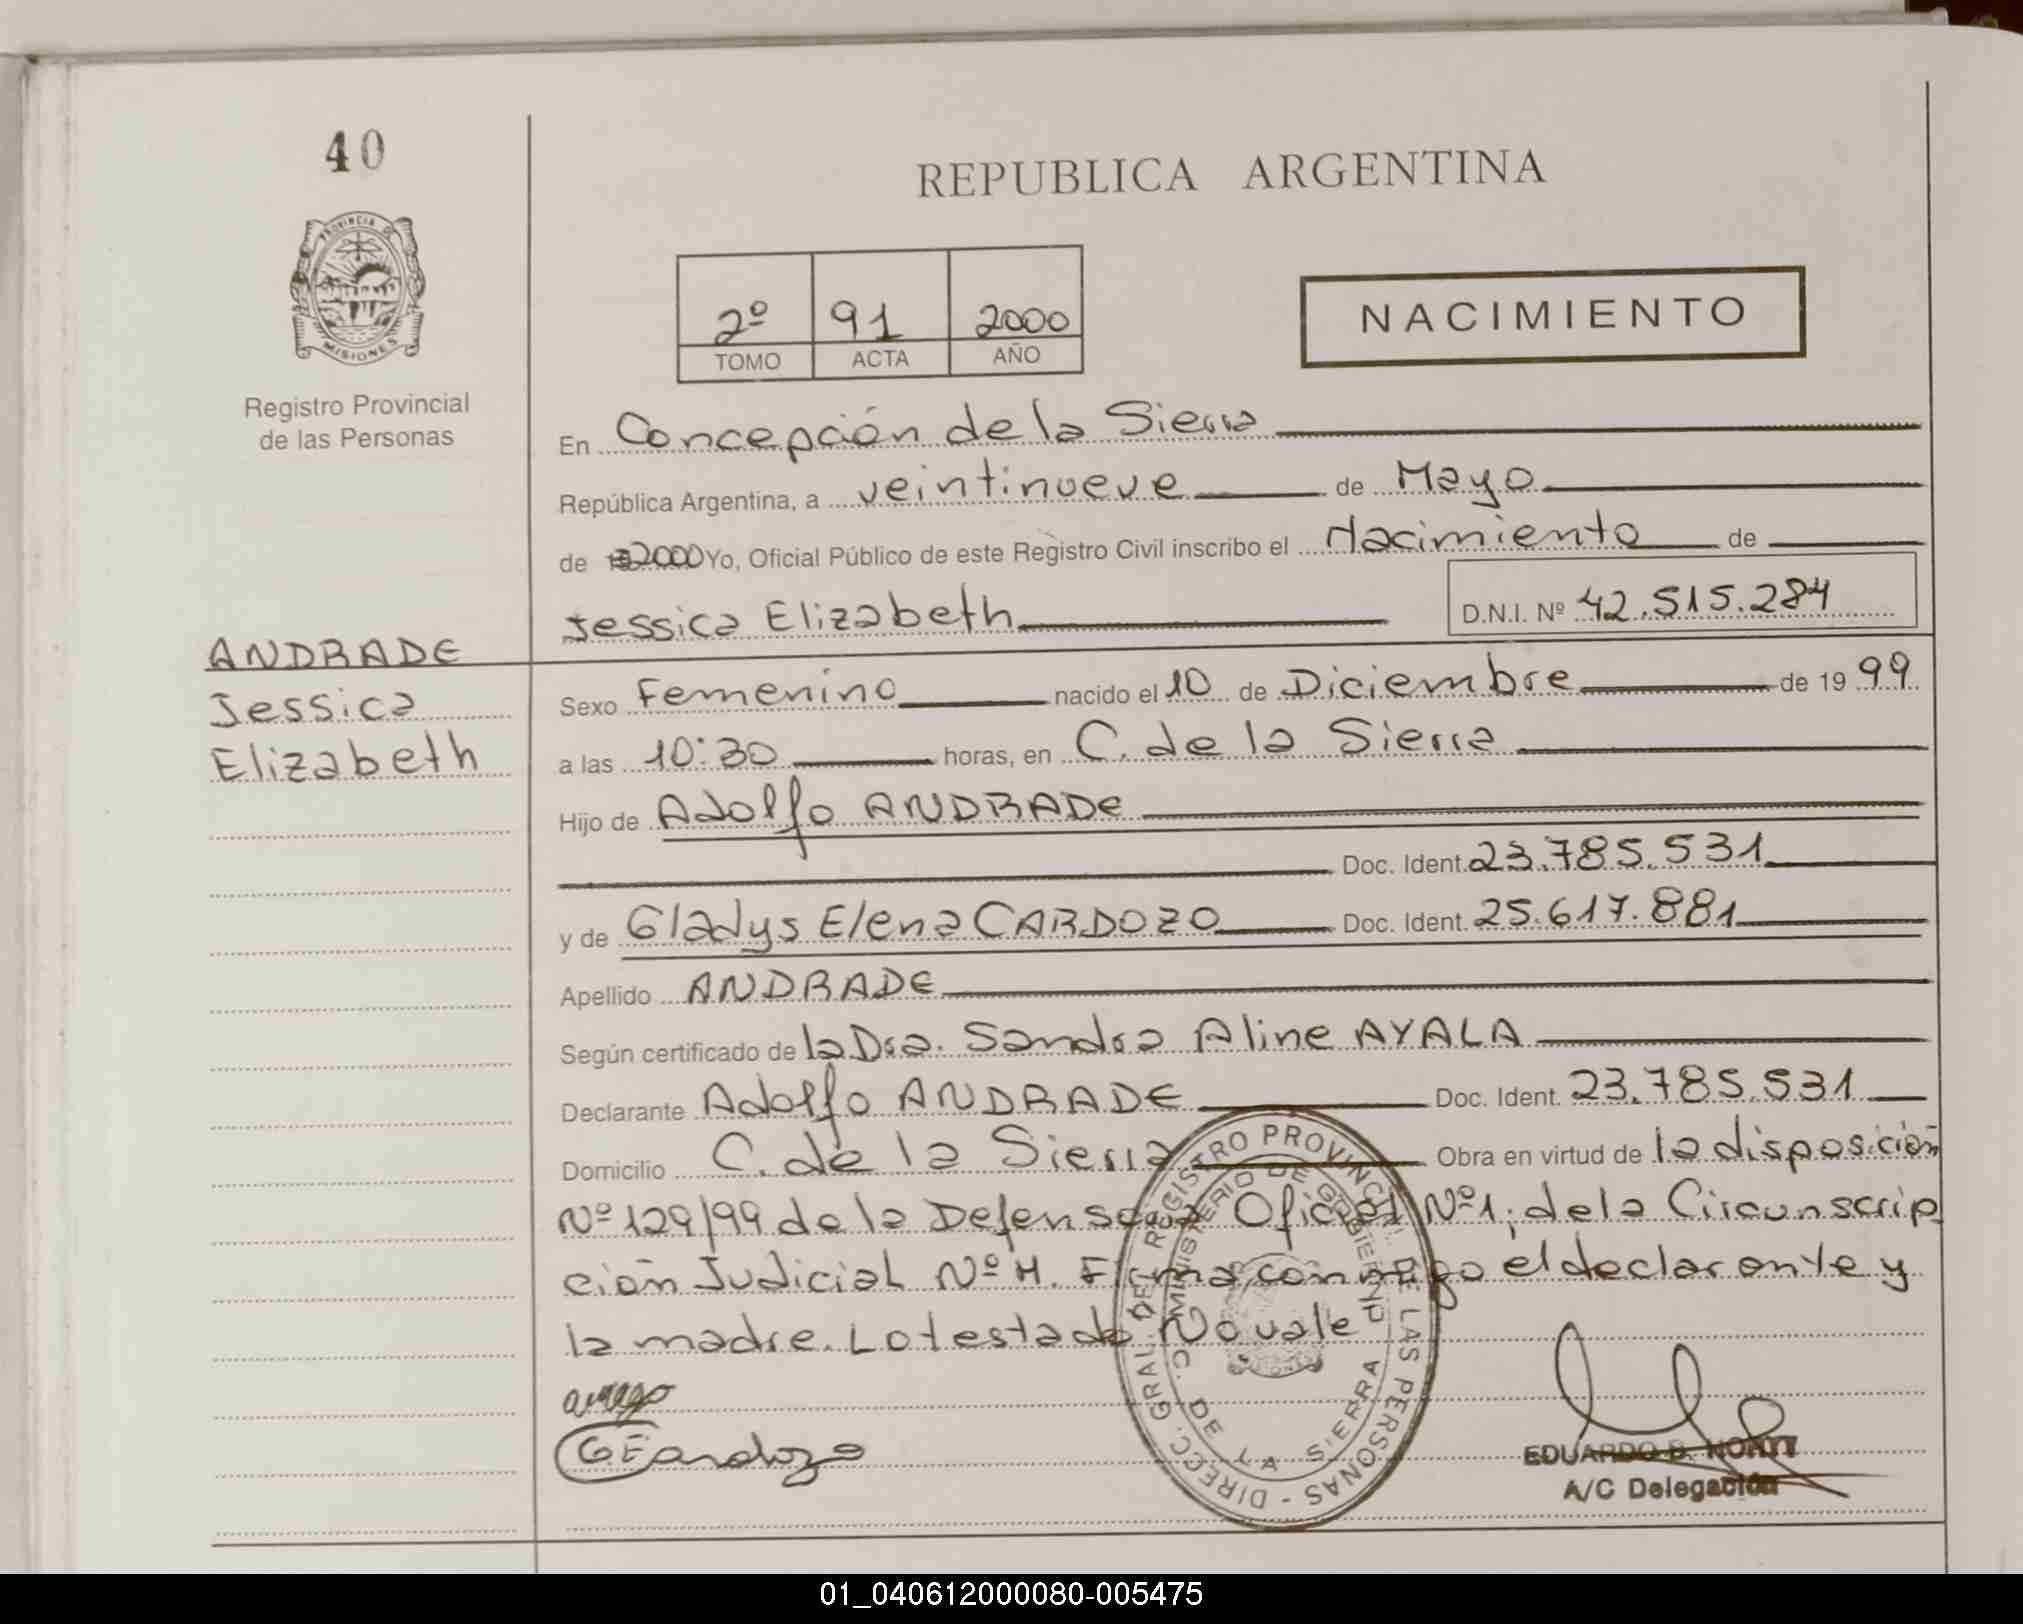 40
REPUBLICA ARGENTINA
PROVINCIA DE
MISIONES
Registro Provincial
de las Personas
2º 91 2000
TOMO ACTA AÑO
NACIMIENTO
En Concepción de la Sierra
República Argentina, a veintinueve de Mayo
de 2000 Yo, Oficial Público de este Registro Civil inscribo el Nacimiento de
Jessica Elizabeth D.N.I. Nº 42.515.284
ANDRADE
Jessica
Elizabeth
Sexo Femenino nacido el 10 de Diciembre de 19 99
a las 10:30 horas, en C. de la Sierra
Hijo de Adolfo ANDRADE
Doc. Ident. 23.785.531
y de Gladys Elena CARDOZO Doc. Ident. 25.617.881
Apellido ANDRADE
Según certificado de la Dra. Sandra Aline AYALA
Declarante Adolfo ANDRADE Doc. Ident. 23.785.531
Domicilio C. de la Sierra Obra en virtud de la disposición
Nº 129/99 de la Defensora Oficial Nº 1, de la Circunscrip
ción Judicial Nº 4. Firma conmigo el declarante y
la madre. Lo testado No vale
G E Cardozo
DIRECC. GRAL. DEL REGISTRO PROVINCIAL DE LAS PERSONAS -
MINISTERIO DE GOBIERNO
C. DE LA SIERRA
EDUARDO
A/C Delegación
01_040612000080-005475